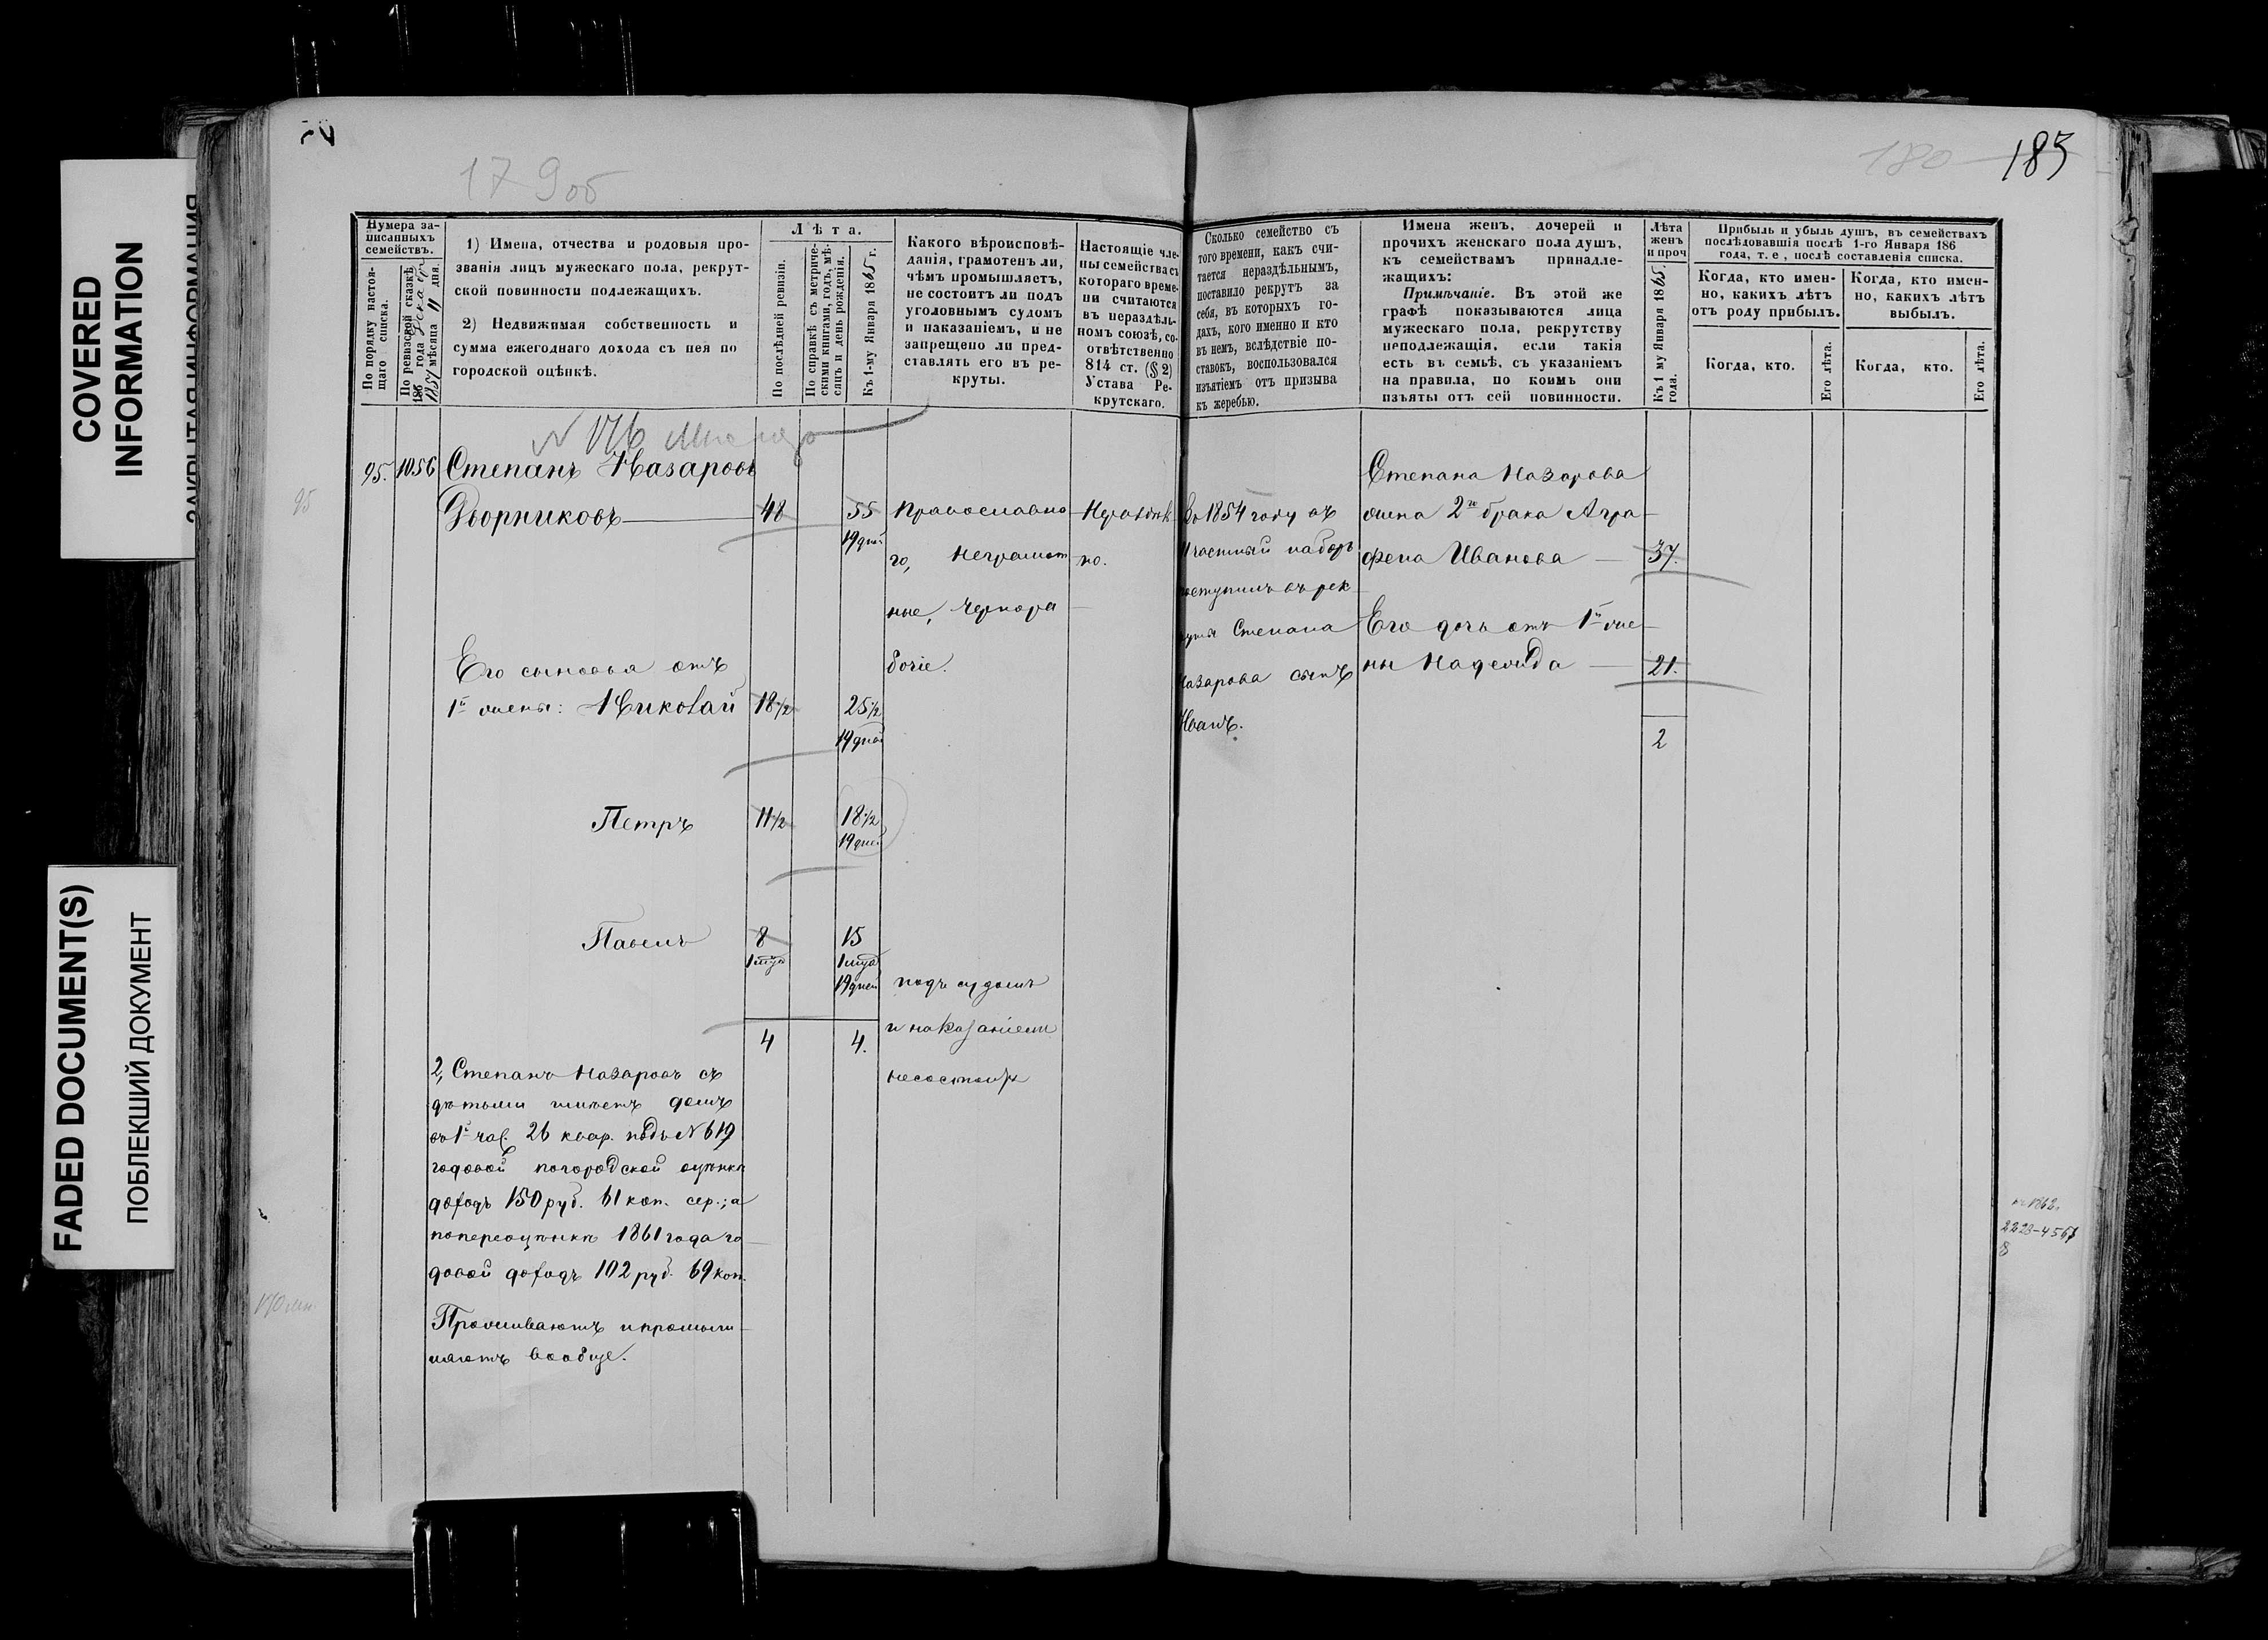 COVERED
INFORMATION
FADED DOCUMENT(S)
ПОБЛЕКШИЙ ДОКУМЕНТ
179об
180
185
Нумера за-
писанныхъ
семействъ.
По порядку настоя-
щаго списка.
По ревизской сказкѣ
185 года
1857 мѣсяца 11 дня.
1) Имена, отчества и родовыя про-
званія лицъ мужескаго пола, рекрут-
ской повинности подлежащихъ.
2) Недвижимая собственность и
сумма ежегоднаго дохода съ нея по
городской оцѣнкѣ.
Лѣта.
По послѣдней ревизіи.
По справкѣ съ метриче-
скими книгами, годъ, мѣ-
сяцъ и день рожденія.
Къ 1-му Января 1865 г.
Какого вѣроисповѣ-
данія, грамотенъ ли,
чѣмъ промышляетъ,
не состоитъ ли подъ
уголовнымъ судомъ
и наказаніемъ, и не
запрещено ли пред-
ставлять его въ ре-
круты.
Настоящіе чле-
ны семейства съ
котораго време-
ни считаются
въ нераздѣль-
номъ союзѣ, со-
отвѣтственно
814 ст. (§ 2)
Устава Ре-
крутскаго.
Сколько семейство съ
того времени, какъ счи-
тается нераздѣльнымъ,
поставило рекрутъ за
себя, въ которыхъ го-
дахъ, кого именно и кто
въ немъ, вслѣдствіе по-
ставокъ, воспользовался
изъятіемъ отъ призыва
къ жеребью.
Имена женъ, дочерей и
прочихъ женскаго пола душъ,
къ семействамъ принадле-
жащихъ:
Примѣчаніе. Въ этой же
графѣ показываются лица
мужескаго пола, рекрутству
неподлежащія, если такія
есть въ семьѣ, съ указаніемъ
на правила, по коимъ они
изъяты отъ сей повинности.
Лѣта
женъ
и проч
Къ 1 му Января 1865.
года.
Прибыль и убыль душъ, въ семействахъ
послѣдовавшія послѣ 1-го Января 186
года, т. е, послѣ составленія списка.
Когда, кто имен-
но, какихъ лѣтъ
отъ роду прибылъ.
Когда, кто имен-
но, какихъ лѣтъ
выбылъ.
Когда, кто.
Его лѣта.
Когда, кто.
Его лѣта.
N 176
95. 1056 Степанъ Назаровъ
95
Дворниковъ 48 55
19 дней
Православна-
го, неграмот
ные, чернора
бочіе.
Нераздѣль
но.
Его сыновья отъ
1й жены: Николай 18½ 25½
19 дней
Петръ 11½ 18½
19 дней
Павелъ 8 15
1 мѣся 1 мѣся
19 дней
подъ судомъ
и наказаніемъ
несостоятъ
4 4.
2, Степанъ Назаровъ съ
дѣтьми имѣетъ домъ
въ 1й час. 26 квар. подъ N 619
годовой погородской оцѣнкѣ
доходъ 150 руб. 61 коп. сер.; а
попереоцѣнкѣ 1861 года го
довой доходъ 102 руб. 69 коп.
Проживаютъ ипромыш
ляютъ вообще.
Во 1854 году въ
11 частный наборъ
поступилъ въ рек
руты Степана
Назарова сынъ
Иванъ.
Степана Назарова
жена 2го брака Агра-
фена Иванова 37.
Его дочь отъ 1й же
ны Надежда 21.
2